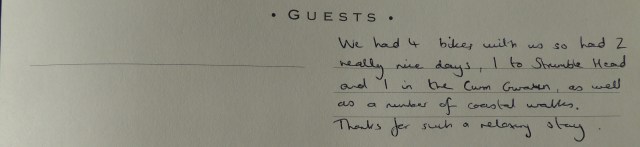 • GUESTS •
We had 4 bikes with us so had 2
really nice days, 1 to Strumble Head
and 1 in the Cwm Gwaun, as well
as a number of coastal walks.
Thanks for such a relaxing stay.